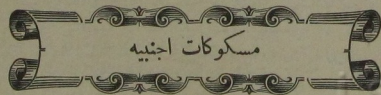 مسكوكات اجنبيه